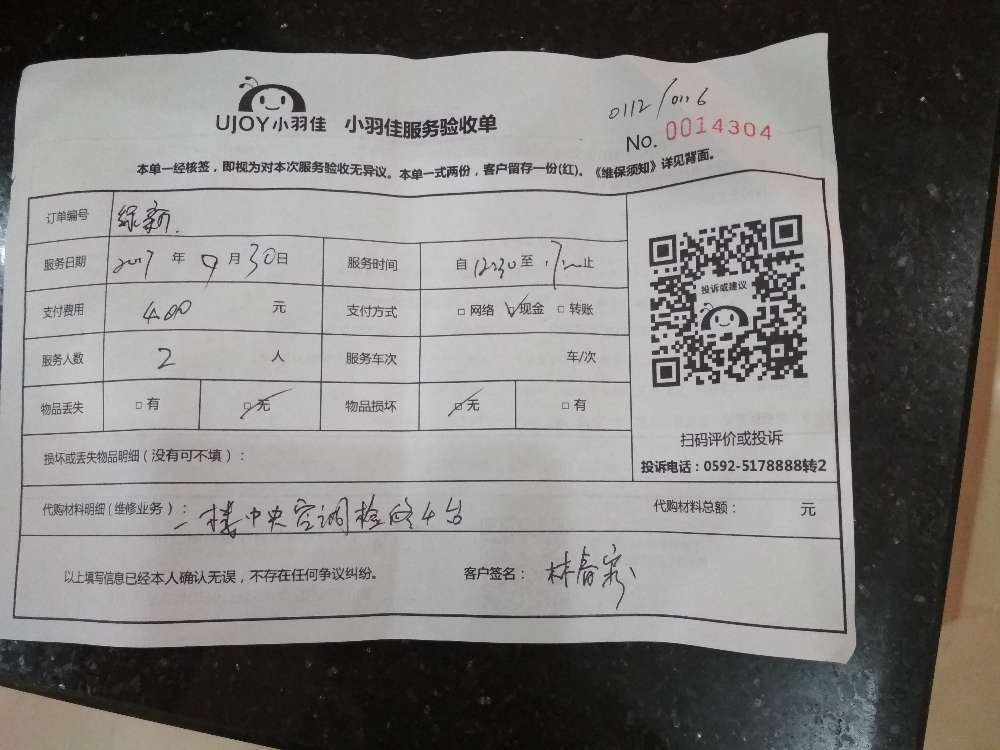 0112/0116
UJOY小羽佳 小羽佳服务验收单
No. 0014304
本单一经核签，即视为对本次服务验收无异议。本单一式两份，客户留存一份(红)。《维保须知》详见背面。
订单编号 绿新.
服务日期 2017 年 9 月 30 日 服务时间 自 12:30 至 17: 止
支付费用 400 元 支付方式 □ 网络 □ 现金 □ 转账
服务人数 2 人 服务车次 车/次
物品丢失 □ 有 □ 无 物品损坏 □ 无 □ 有
投诉或建议
扫码评价或投诉
投诉电话：0592-5178888转2
损坏或丢失物品明细（没有可不填）：
代购材料明细（维修业务）： 一楼中央空调检修4台 代购材料总额： 元
以上填写信息已经本人确认无误，不存在任何争议纠纷。 客户签名： 林春